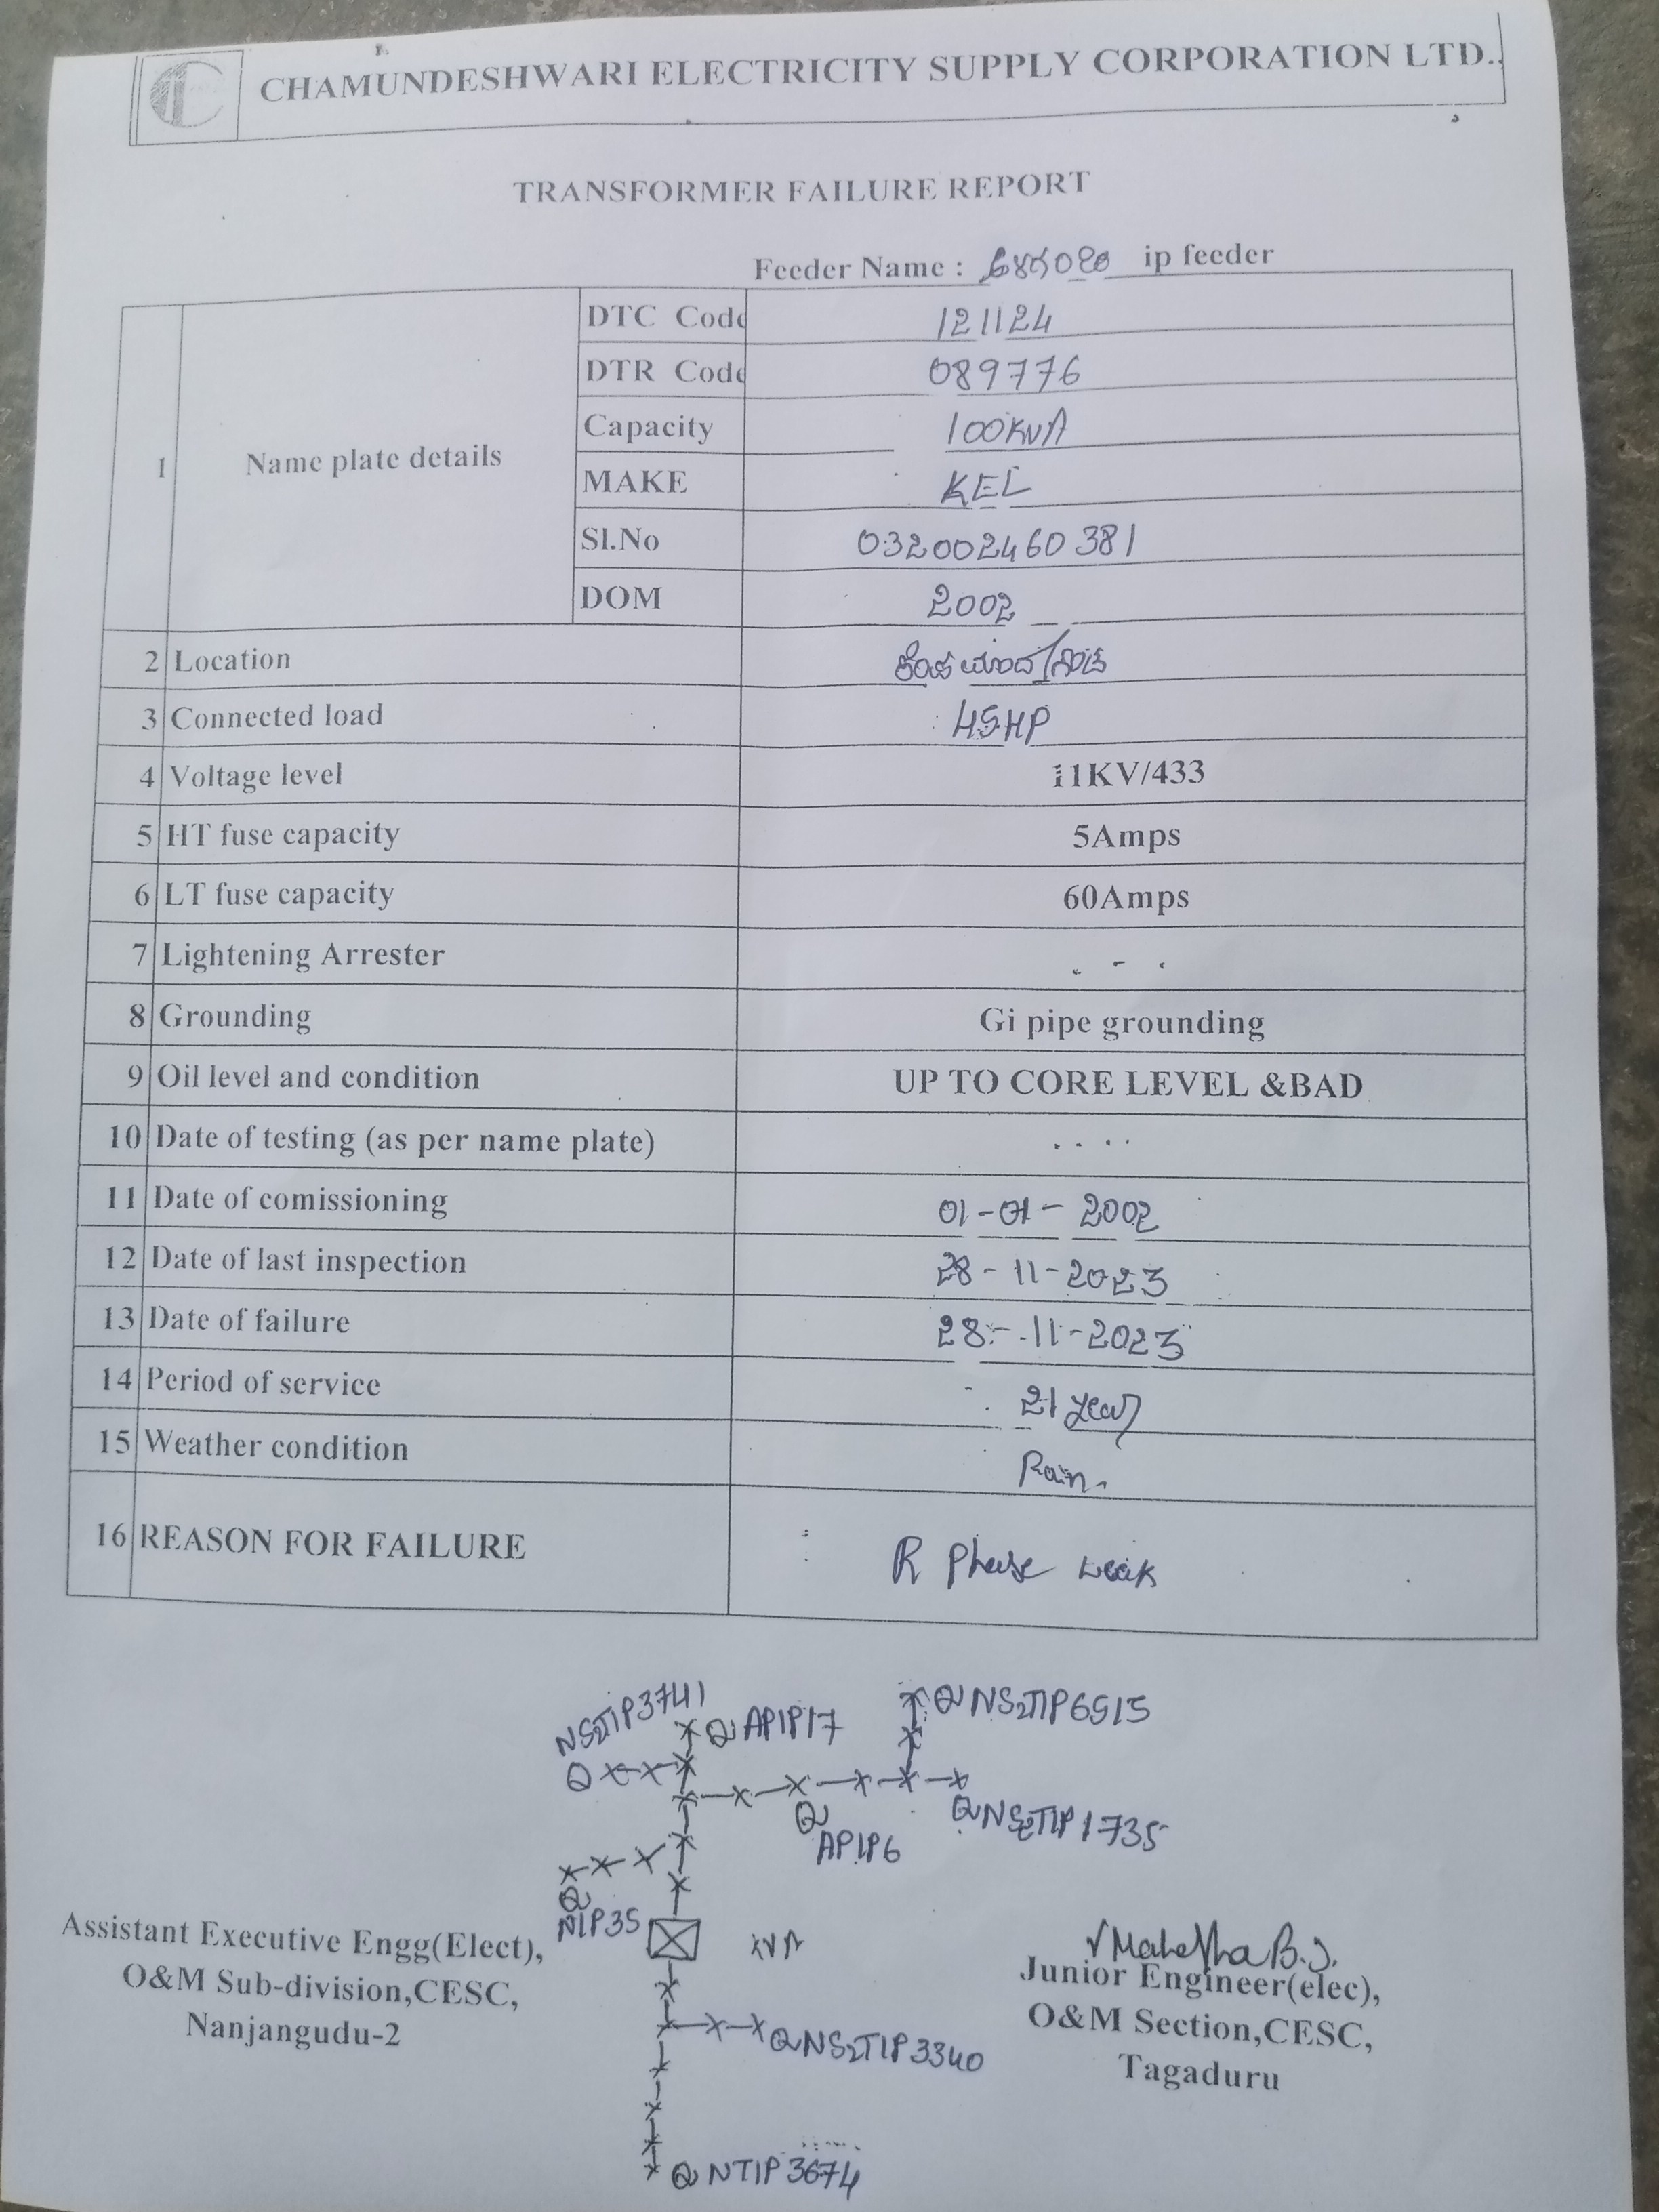 CHAMUNDESHWARI ELECTRICITY SUPPLY CORPORATION LTD.,
TRANSFORMER FAILURE REPORT
Feeder Name : ip feeder
1 Name plate details
DTC Code 121124
DTR Code 089776
Capacity 100KVA
MAKE KEL
Sl.No 032002460381
DOM 2002
2 Location
3 Connected load 45HP
4 Voltage level 11KV/433
5 HT fuse capacity 5Amps
6 LT fuse capacity 60Amps
7 Lightening Arrester - - -
8 Grounding Gi pipe grounding
9 Oil level and condition UP TO CORE LEVEL &BAD
10 Date of testing (as per name plate) - - - -
11 Date of comissioning 01-01-2002
12 Date of last inspection 28-11-2023
13 Date of failure 28-11-2023
14 Period of service 21 year
15 Weather condition Rain
16 REASON FOR FAILURE R phase weak
NS2TIP3741
AP1P17
NS2TIP6515
NS2TIP1735
AP1P6
N1P35
Assistant Executive Engg(Elect),
O&M Sub-division,CESC,
Nanjangudu-2
Junior Engineer(elec),
O&M Section,CESC,
Tagaduru
NS2TIP3340
NTIP3674